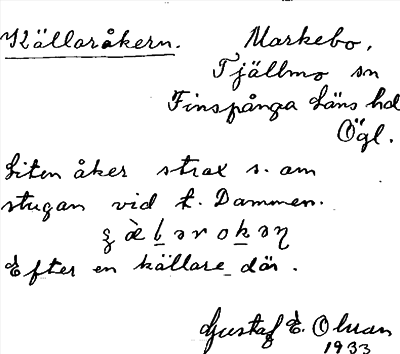 Källaråkern. Markebo,
Tjällmo sn
Finspånga läns hd
Ögl.
Liten åker strax s. om
stugan vid t. Dammen.
Efter en källare där.
Gustaf E. Olsson
1933